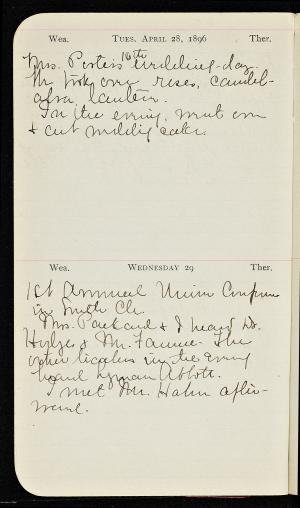 Wea. TUES. APRIL 28, 1896 Ther.
Mrs. Porter's 10th wedding-day.
We took over roses, candel-
abra, lantern.
In the evening, went over
& cut wedding cake.
Wea. WEDNESDAY 29 Ther.
1st Annual Union Conference
in South Ch.
Mrs. Packard & I heard Dr.
& Mr. The
other teachers in the evening
heard Lyman Abbott.
I met Mr. Hahn after-
ward.